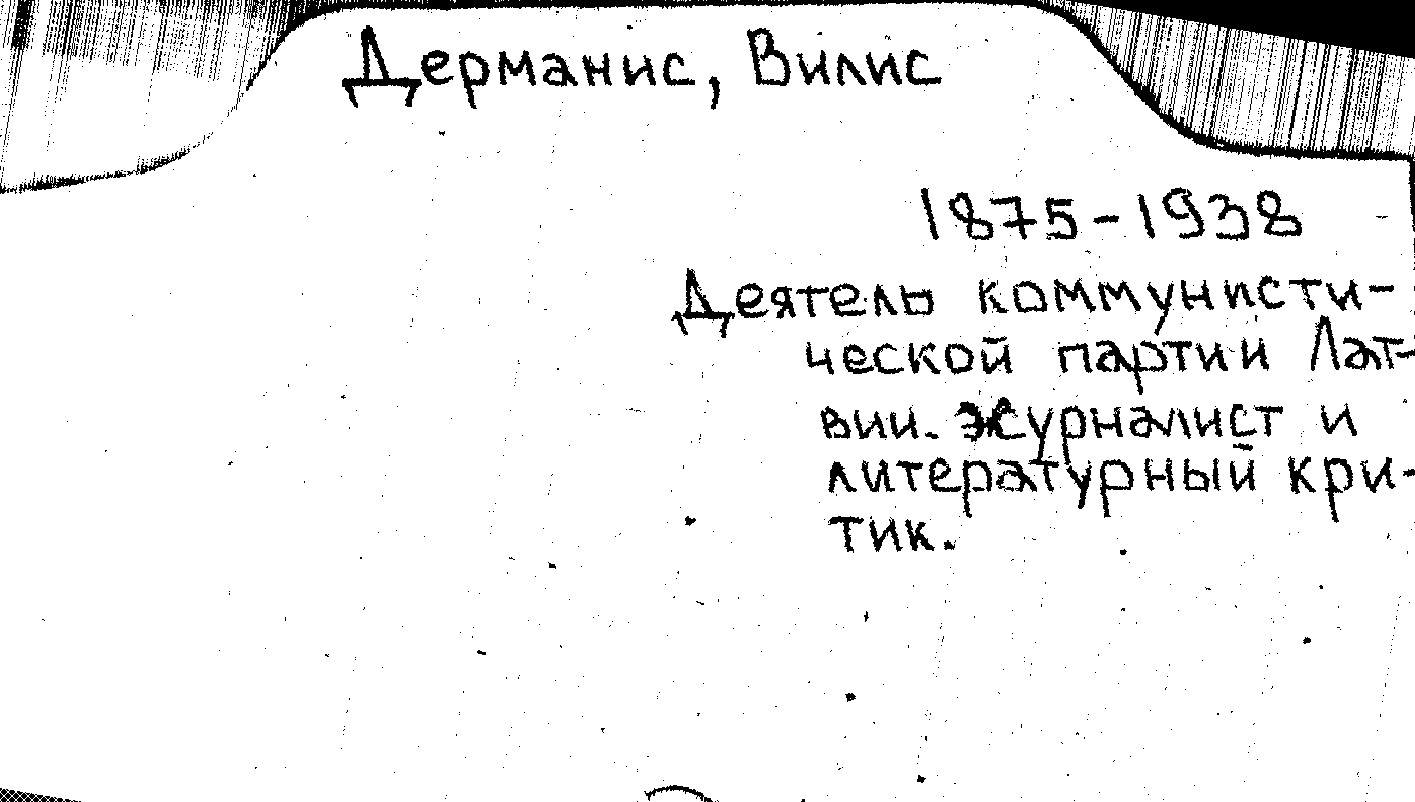 Дерманис, Вилис
1875-1938
Деятель коммунисти-
ческой партии Лат-
вии. журналист и
литературный кри-
тик.